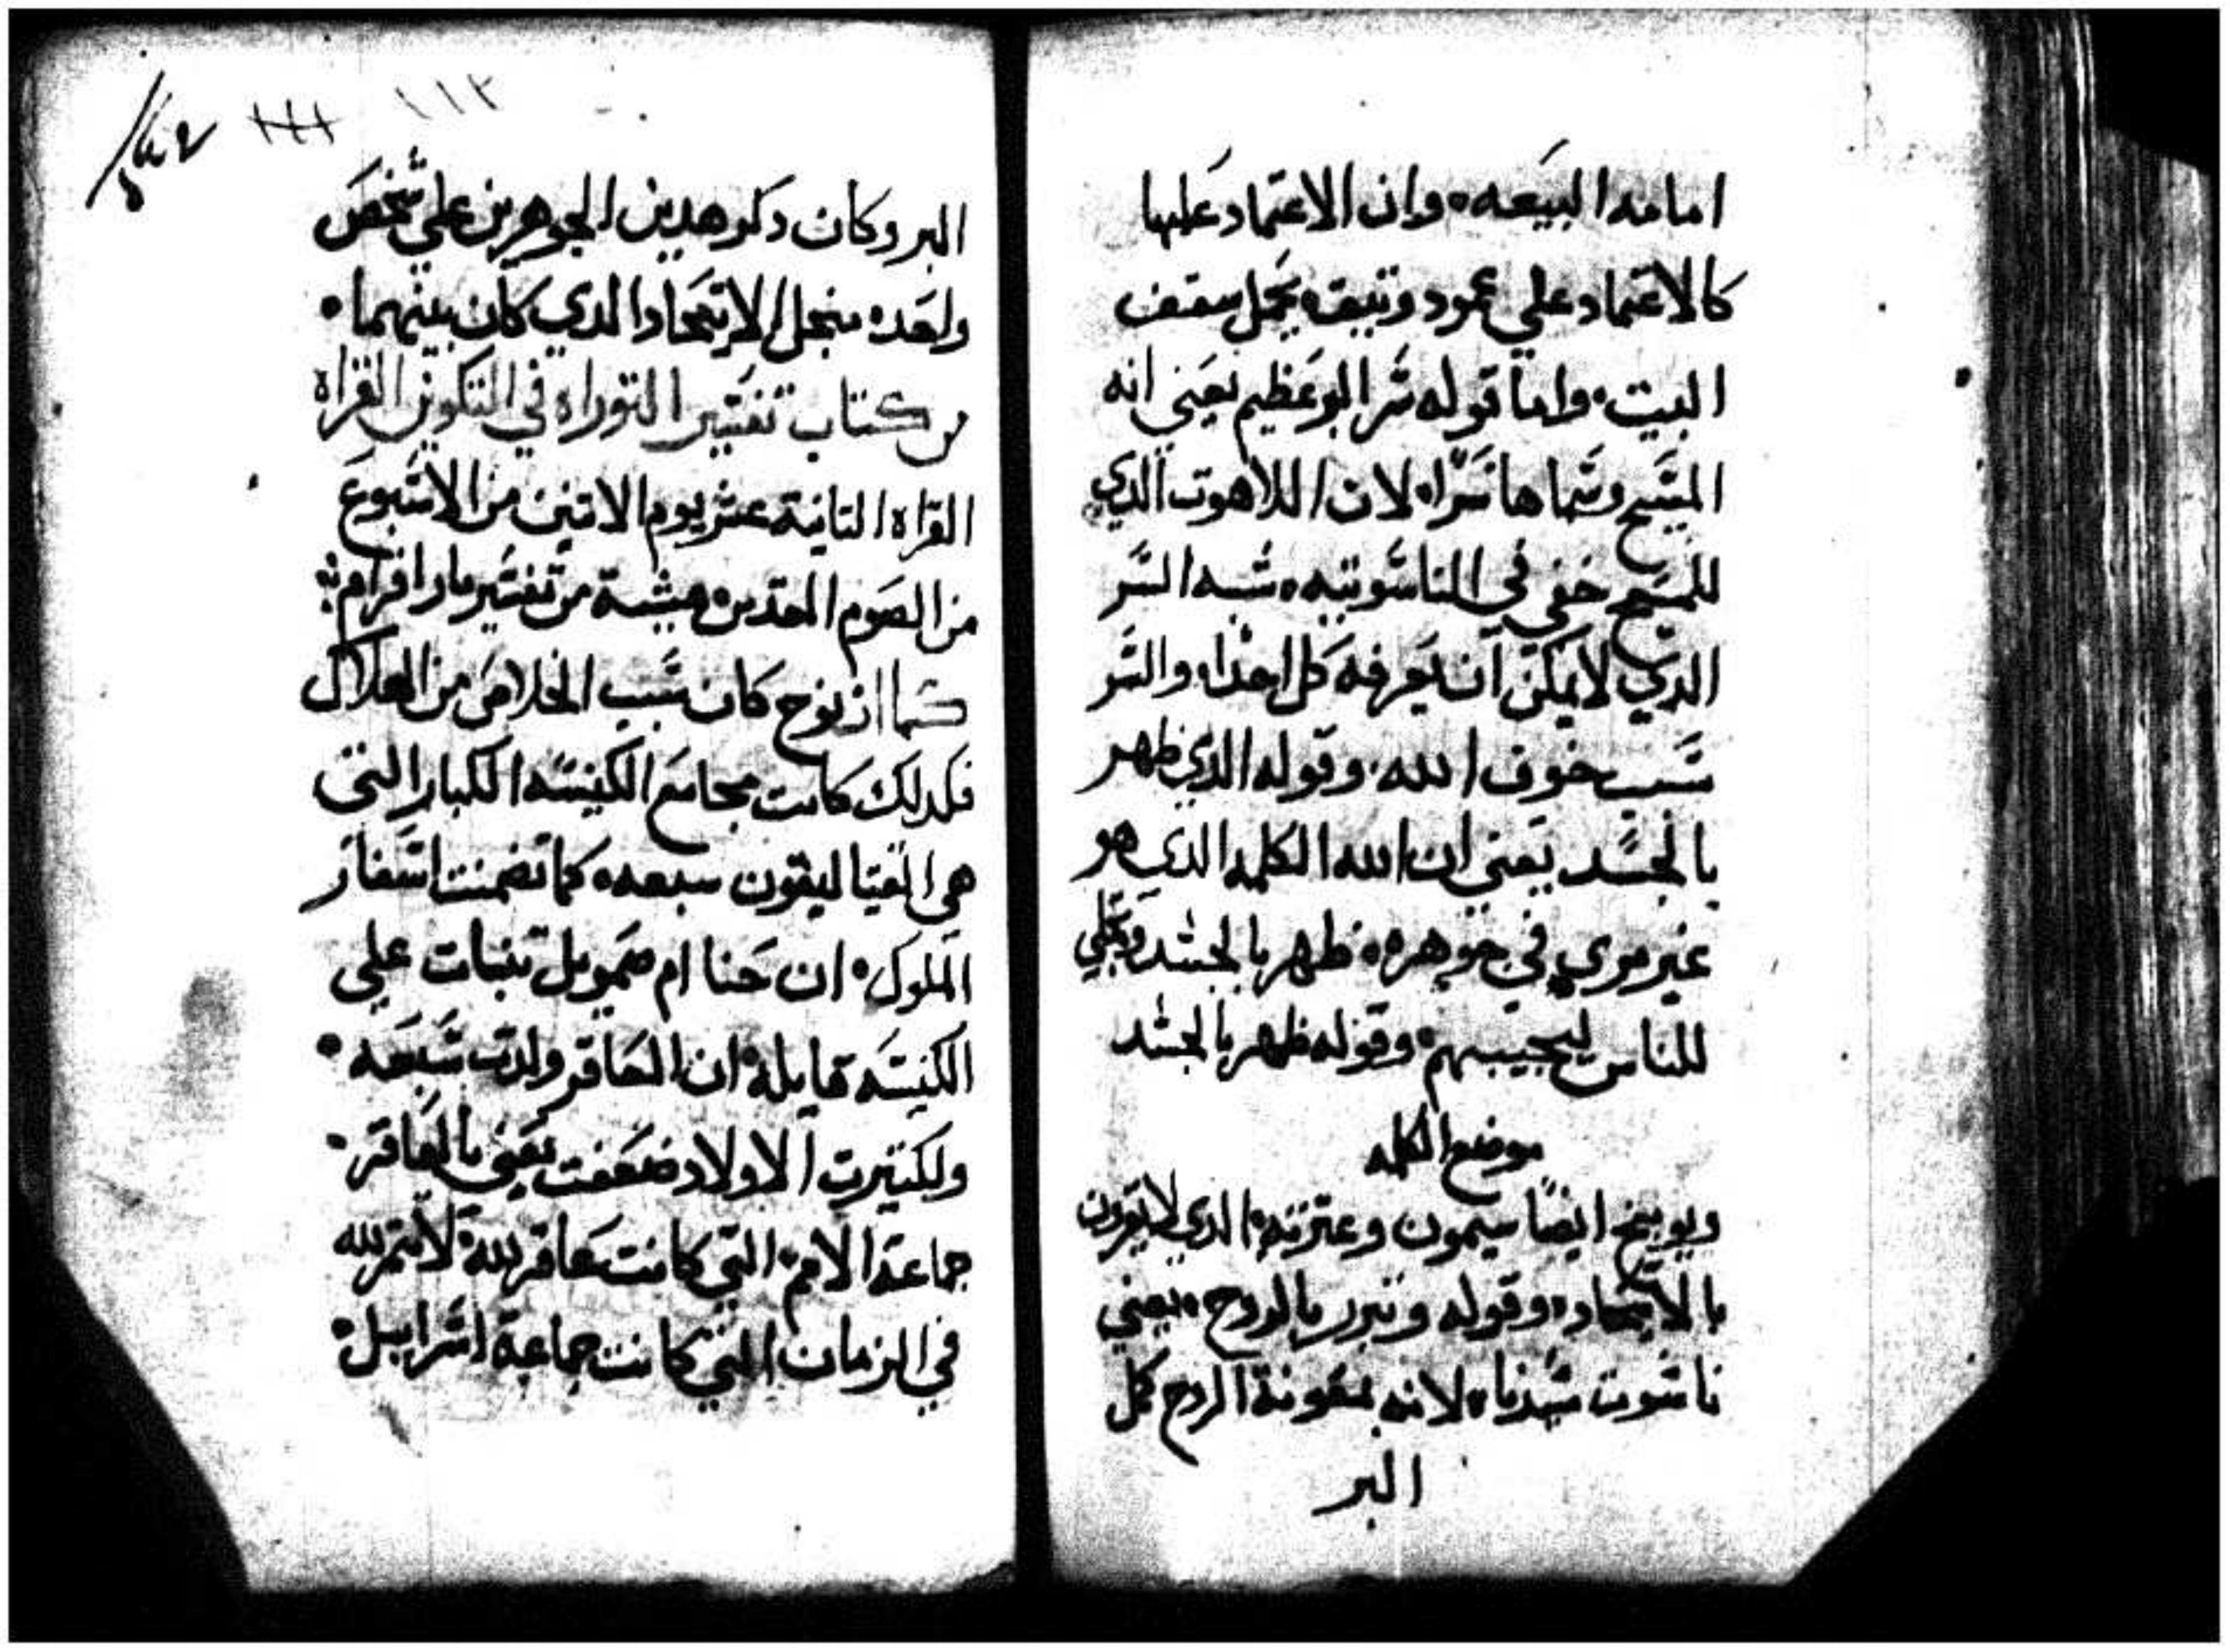 امامه البيعه وان الاعتماد عليها
كالاعتماد علي عمود وتيق يحمل سقف
البيت واما قوله سر البر عظيم يعني انه
المسيح وسماها سرا لان اللاهوت الدي
للمسيح خفي في الناسوتيه شبه السر
الدي لا يمكن ان يعرفه كل احدا والسر
سبب خوف الله وقوله الدي ظهر
بالجسد يعني ان الله الكلمه الدي هو
غير مري في جوهره ظهر بالجسد وتجلي
للناس ليجيبهم وقوله ظهر بالجسد
موضع الكلمه
ويوبيخ ايضا سيمون وعترته الدي لا يقرون
بالاتحاد وقوله وتبرر بالروح يعني
ناسوت سيدنا لانه بمعونة الروح كمل
البر
١١٢
البر وكان دكر هدين الجوهرين علي شخص
واحده منجل الاتحاد الدي كان بينهما
من كتاب تفسير التوراه في التكوين القراه
القراه التانية عشر يوم الاتنين من الاسبوع
من الصوم المقدس من تفسير مار افرام
كما ان نوح كان سبب الخلاص من الهلاك
فكدلك كانت مجامع الكنيسه الكبار التي
هي القتاليقون سبعه كما تضمنت اسفار
الملوك ان حنا ام صمويل تنبات علي
الكنيسه قايلة ان العاقر ولدت سبعه
ولكتيرت الاولاد ضعفت يعني بالعاقر
جماعة الامم التي كانت عاقر لله لا تتمر لله
في الزمان التي كانت جماعة اسراييل